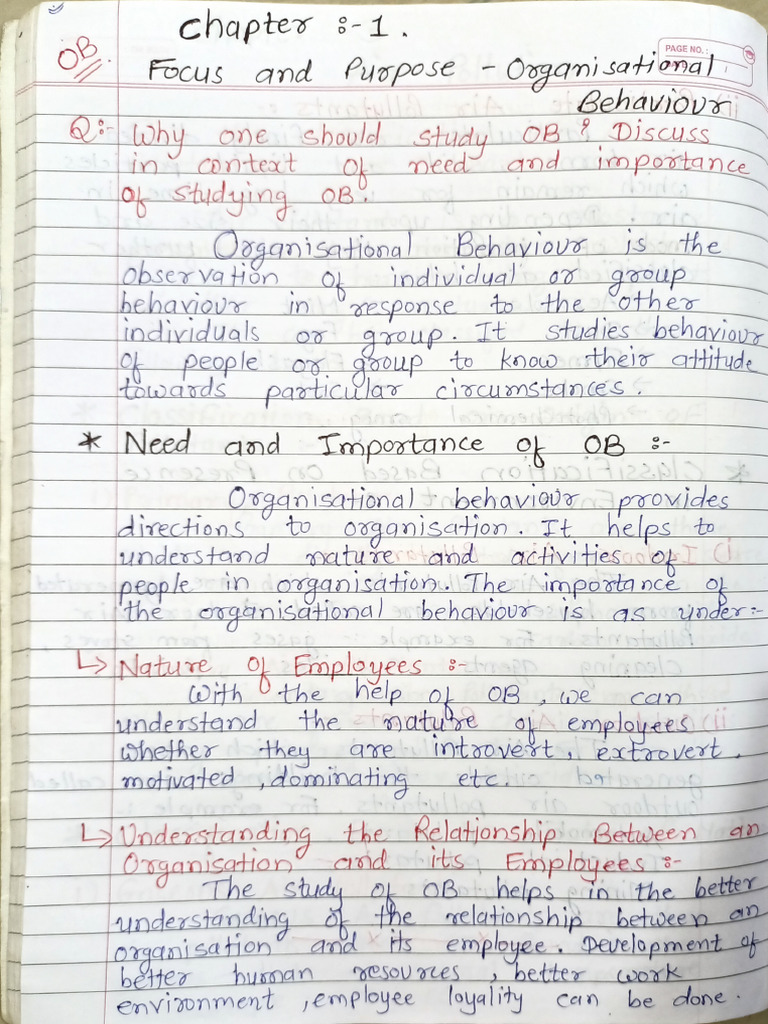 Chapter :- 1.
OB
PAGE NO.:
Focus and Purpose - Organisational
Behaviour
Q:- Why one should study OB? Discuss
in context of need and importance
of studying OB.
Organisational Behaviour is the
observation of individual or group
behaviour in response to the other
individuals or group. It studies behaviour
of people or group to know their attitude
towards particular circumstances.
* Need and Importance of OB :-
Organisational behaviour provides
directions to organisation. It helps to
understand nature and activities of
people in organisation. The importance of
the organisational behaviour is as under:-
↳ Nature of Employees :-
With the help of OB, we can
understand the nature of employees
whether they are introvert, extrovert,
motivated, dominating etc.
↳ Understanding the Relationship Between an
Organisation and its Employees :-
The study of OB helps in the better
understanding of the relationship between an
organisation and its employee. Development of
better human resources, better work
environment, employee loyality can be done.